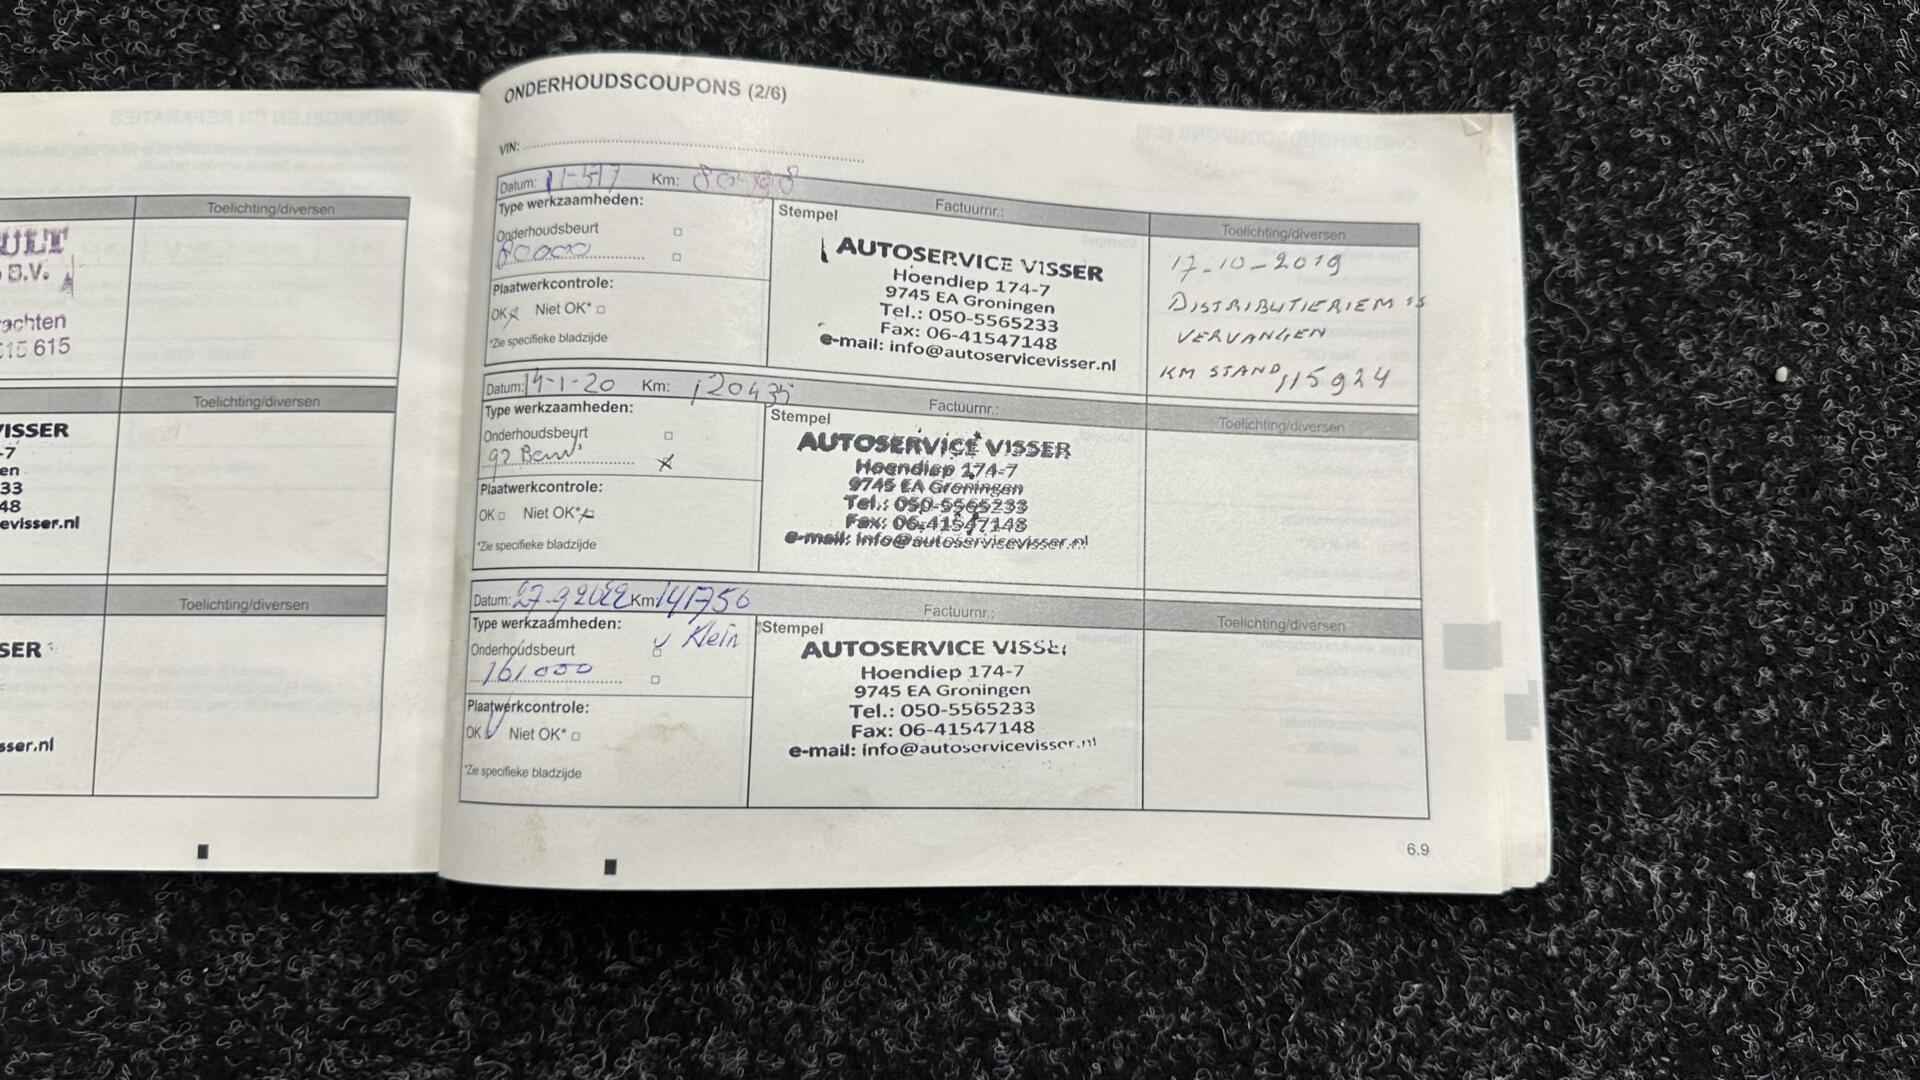 ULT
S.V.
achten
615
Toelichting/diversen
VISSER
-7
en
33
48
evisser.nl
Toelichting/diversen
SER
sser.nl
Toelichting/diversen
ONDERHOUDSCOUPONS (2/6)
VIN:
Datum: Km:
Type werkzaamheden:
Onderhoudsbeurt
80000
Plaatwerkcontrole:
OK Niet OK*
*Zie specifieke bladzijde
Factuurnr.:
Stempel
AUTOSERVICE VISSER
Hoendiep 174-7
9745 EA Groningen
Tel.: 050-5565233
Fax: 06-41547148
e-mail: info@autoservicevisser.nl
Toelichting/diversen
17-10-2019
DISTRIBUTIERIEM is
VERVANGEN
KM STAND 115924
Datum: 14-1-20 Km: 120435
Type werkzaamheden:
Onderhoudsbeurt
Plaatwerkcontrole:
OK Niet OK*
*Zie specifieke bladzijde
Factuurnr.:
Stempel
AUTOSERVICE VISSER
Hoendiep 174-7
9745 EA Groningen
Tel.: 050-5565233
Fax: 06-41547148
e-mail: info@autoservicevisser.nl
Toelichting/diversen
Datum: 27-9 2022 Km 141756
Type werkzaamheden:
Onderhoudsbeurt Klein
161000
Plaatwerkcontrole:
OK Niet OK*
*Zie specifieke bladzijde
Factuurnr.:
Stempel
AUTOSERVICE VISSER
Hoendiep 174-7
9745 EA Groningen
Tel.: 050-5565233
Fax: 06-41547148
e-mail: info@autoservicevisser.nl
Toelichting/diversen
6.9